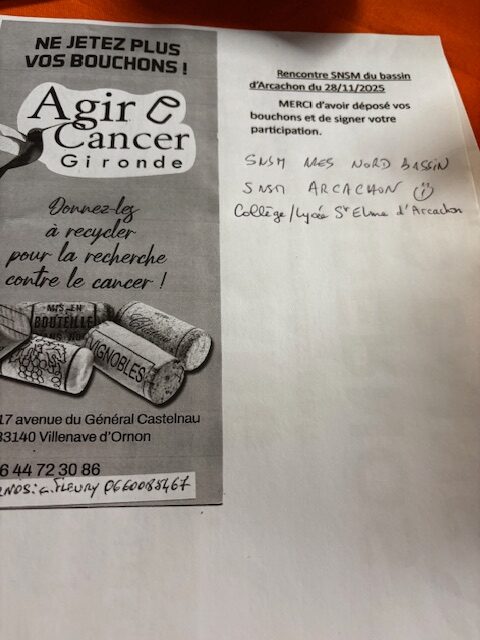 NE JETEZ PLUS
VOS BOUCHONS !
Agir e
Cancer
Gironde
Donnez-les
à recycler
pour la recherche
contre le cancer !
MIS EN
BOUTEILLE
VIGNOBLES
17 avenue du Général Castelnau
33140 Villenave d'Ornon
6 44 72 30 86
FLEURY 0660085467
Rencontre SNSM du bassin
d'Arcachon du 28/11/2025
MERCI d'avoir déposé vos
bouchons et de signer votre
participation.
SNSM NORD BASSIN
SNSM ARCACHON
Collège/Lycée St Elme d'Arcachon